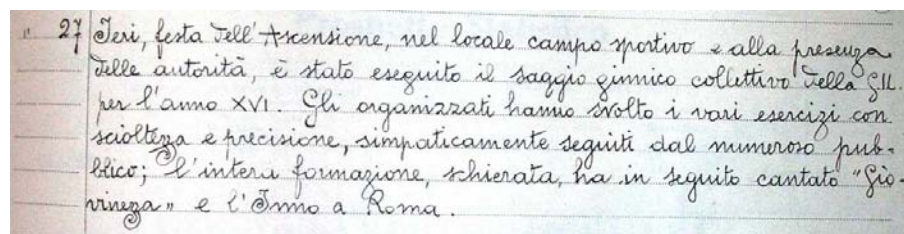 " 27 Ieri, festa dell'Ascensione, nel locale campo sportivo e alla presenza
delle autorità, è stato eseguito il saggio ginnico collettivo della GIL.
per l'anno XVI. Gli organizzati hanno svolto i vari esercizi con
scioltezza e precisione, simpaticamente seguiti dal numeroso pub-
blico; l'intera formazione, schierata, ha in seguito cantato "Gio-
vinezza" e l'Inno a Roma.